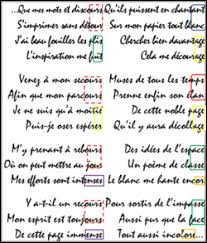 ...Que mes mots et discours
S'imprimer sans détour
J'ai beau fouiller les plis
L'inspiration me fuit
Venez à mon secours
Afin que mon parcours
Je ne suis qu'à moitié
Puis-je oser espérer
M'y prenant à rebours
Où on peut mettre au jour
Mes efforts sont intenses
Y a-t-il un recours
Mon esprit est toujours
De cette page immense
Qu'ils puissent en chantant
Sur mon papier tout blanc
Chercher bien davantage
Cela me décourage
Muses de tous les temps
Prenne enfin son élan
De cette noble page
Qu'il y aura décollage
Des idées de l'espace
Un poème de classe
Le blanc me hante encor
Pour sortir de l'impasse
Aussi pur que la face
Tout aussi incolore...